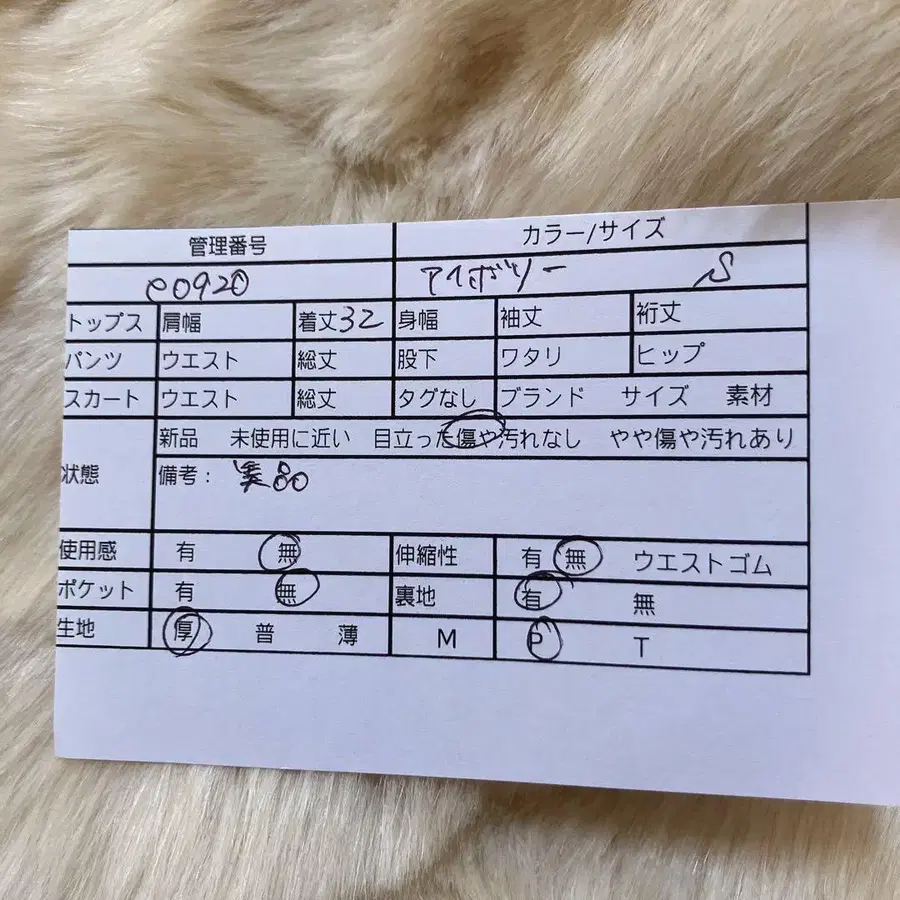 管理番号 カラー/サイズ
e0920 アイボリー S
トップス 肩幅 着丈32 身幅 袖丈 裄丈
パンツ ウエスト 総丈 股下 ワタリ ヒップ
スカート ウエスト 総丈 タグなし ブランド サイズ 素材
新品 未使用に近い 目立った傷や汚れなし やや傷や汚れあり
状態 備考: 美品
使用感 有 無 伸縮性 有 無 ウエストゴム
ポケット 有 無 裏地 有 無
生地 厚 普 薄 M P T